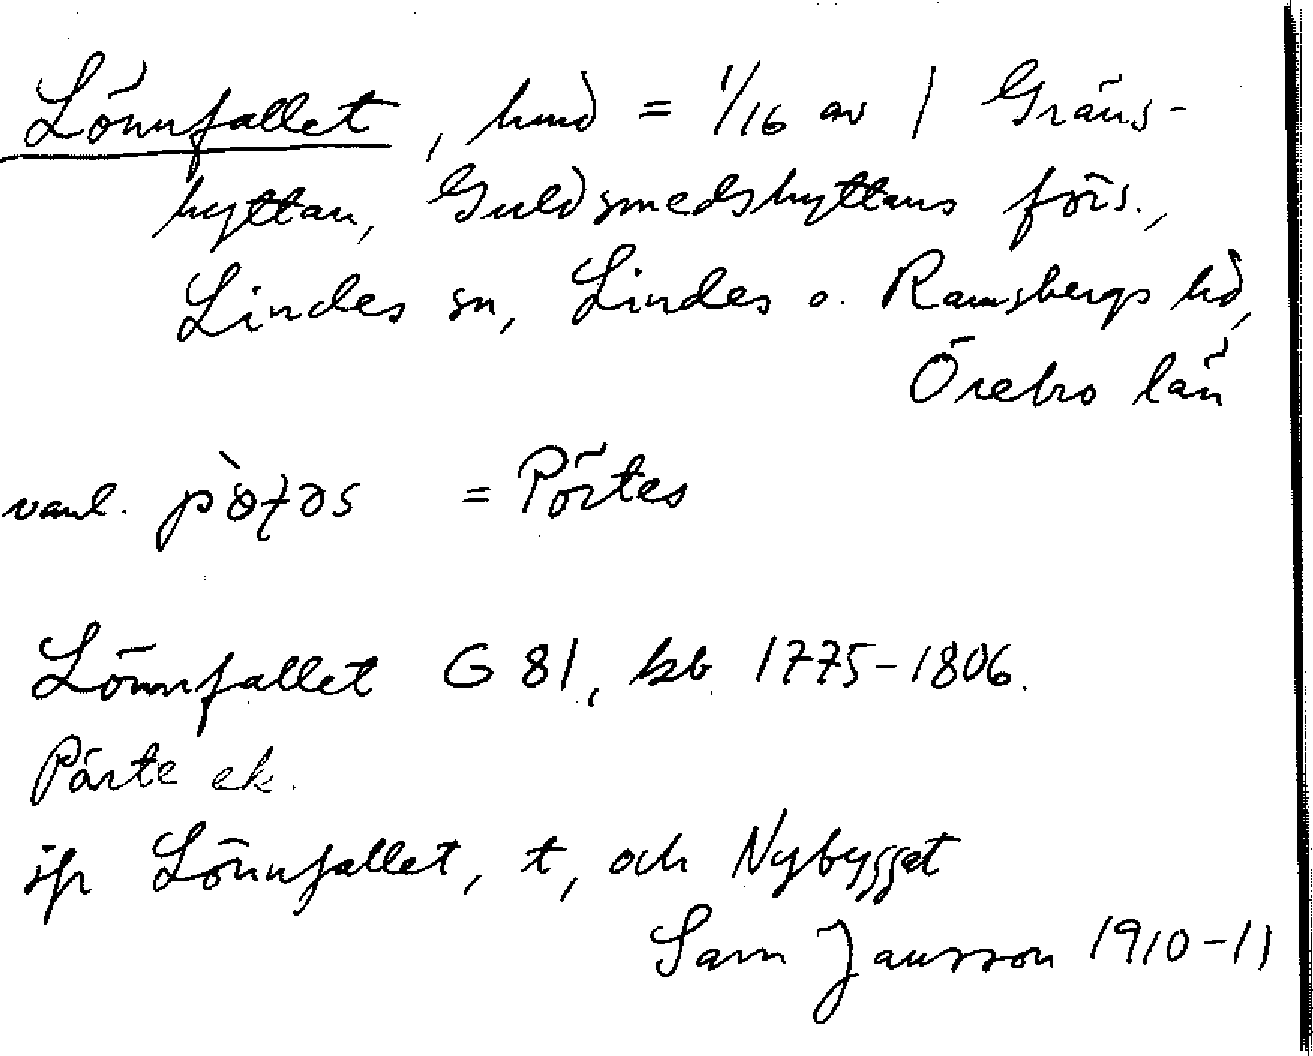 Lönnfallet, hmd = 1/16 av 1 Gräns-
hyttan, Guldsmedshyttans förs.,
Lindes sn, Lindes o. Ramsbergs hd,
Örebro län
vanl. = Pörtes
Lönnfallet G 81, kb 1775-1806.
Pärte ek.
jfr Lönnfallet, t, och Nybygget
Sam Jansson 1910-11